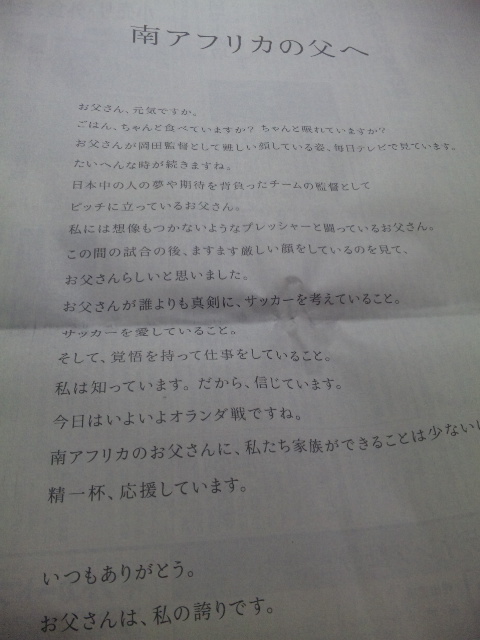 南アフリカの父へ
お父さん、元気ですか。
ごはん、ちゃんと食べていますか？ちゃんと眠れていますか？
お父さんが岡田監督として難しい顔している姿、毎日テレビで見ています。
たいへんな時が続きますね。
日本中の人の夢や期待を背負ったチームの監督として
ピッチに立っているお父さん。
私には想像もつかないようなプレッシャーと闘っているお父さん。
この間の試合の後、ますます厳しい顔をしているのを見て、
お父さんらしいと思いました。
お父さんが誰よりも真剣に、サッカーを考えていること。
サッカーを愛していること。
そして、覚悟を持って仕事をしていること。
私は知っています。だから、信じています。
今日はいよいよオランダ戦ですね。
南アフリカのお父さんに、私たち家族ができることは少ない
精一杯、応援しています。
いつもありがとう。
お父さんは、私の誇りです。